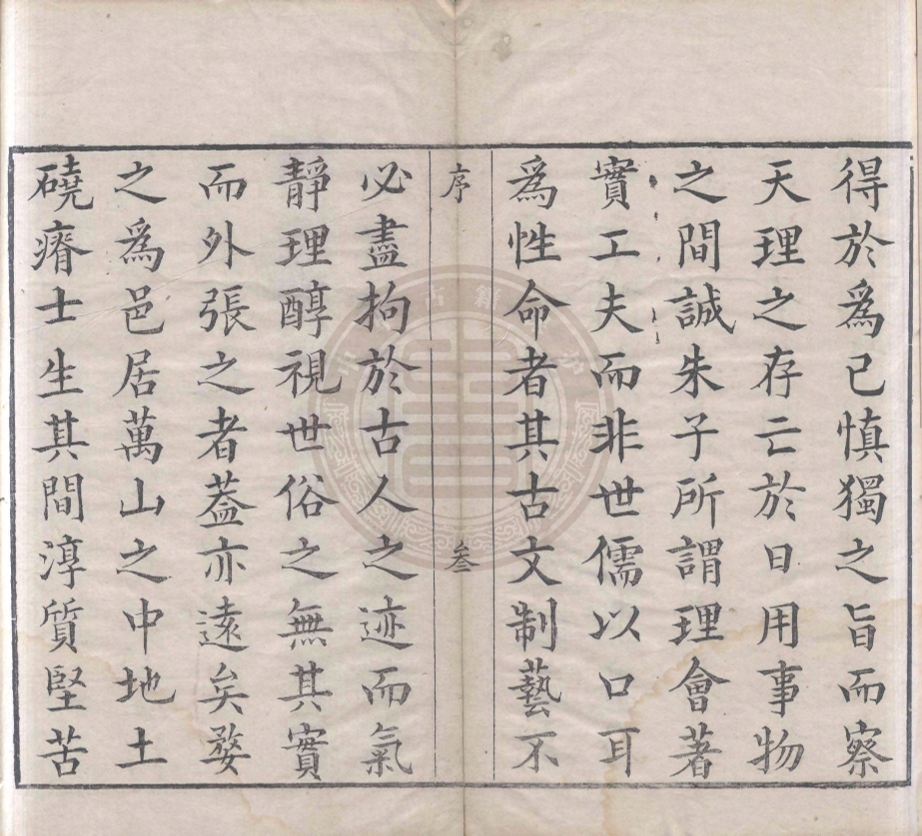 得於爲己慎獨之旨而察
天理之存亡於日用事物
之間誠朱子所謂理會著
實工夫而非世儒以口耳
爲性命者其古文制藝不
序
叁
必盡拘於古人之迹而氣
靜理醇視世俗之無其實
而外張之者葢亦遠矣婺
之爲邑居萬山之中地土
磽瘠士生其間淳質堅苦